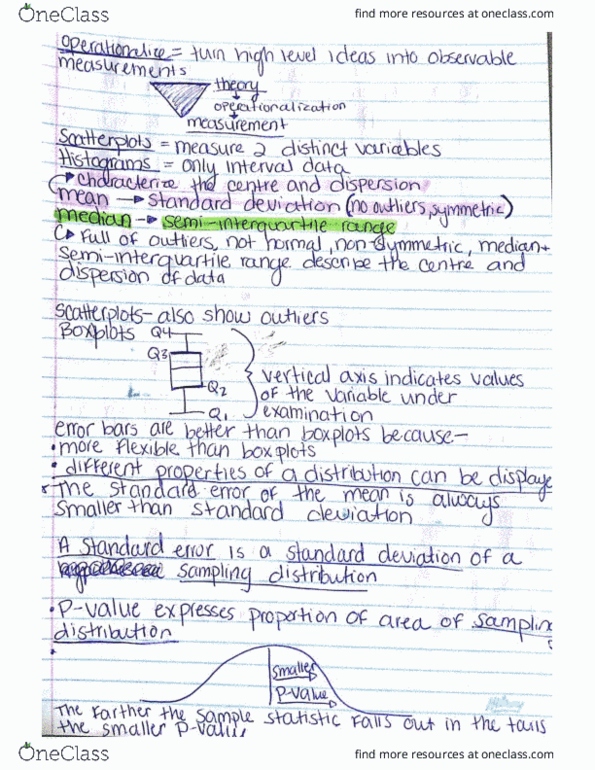 OneClass
find more resources at oneclass.com
operationalize = turn high level ideas into observable
measurements
theory
operationalization
measurement
Scatterplots = measure 2 distinct variables
Histograms = only interval data
characterize the centre and dispersion
mean → standard deviation (no outliers, symmetric)
median → semi-interquartile range
Full of outliers, not normal, non-symmetric, median +
semi-interquartile range describe the centre and
dispersion of data
scatterplots - also show outliers
Boxplots Q4
Q3
vertical axis indicates values
Q2 of the variable under
Q1 examination
error bars are better than boxplots because-
• more flexible than boxplots
• different properties of a distribution can be displaye
The standard error of the mean is always
smaller than standard deviation
A standard error is a standard deviation of a
sampling distribution
• P-value expresses proportion of area of samplin
distribution
smaller
P-value
The farther the sample statistic falls out in the tails
the smaller P-valu
OneClass
find more resources at oneclass.com